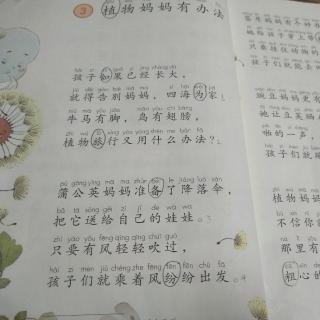 3 植物妈妈有办法
hái zi rú guǒ yǐ jīng zhǎng dà
孩子如果已经长大，
jiù děi gào bié mā ma sì hǎi wéi jiā
就得告别妈妈，四海为家。
niú mǎ yǒu jiǎo niǎo yǒu chì bǎng
牛马有脚，鸟有翅膀，
zhí wù lǚ xíng yòu yòng shén me bàn fǎ
植物旅行又用什么办法？
pú gōng yīng mā ma zhǔn bèi le jiàng luò sǎn
蒲公英妈妈准备了降落伞，
bǎ tā sòng gěi zì jǐ de wá wa
把它送给自己的娃娃。
zhǐ yào yǒu fēng qīng qīng chuī guò
只要有风轻轻吹过，
hái zi men jiù chéng zhe fēng fēn fēn chū fā
孩子们就乘着风纷纷出发。
她给孩子
只要挂住动物
孩子们就能去
豌豆妈妈更
她让豆荚
啪的一声，
孩子们就
植物妈妈
那里有
粗心的